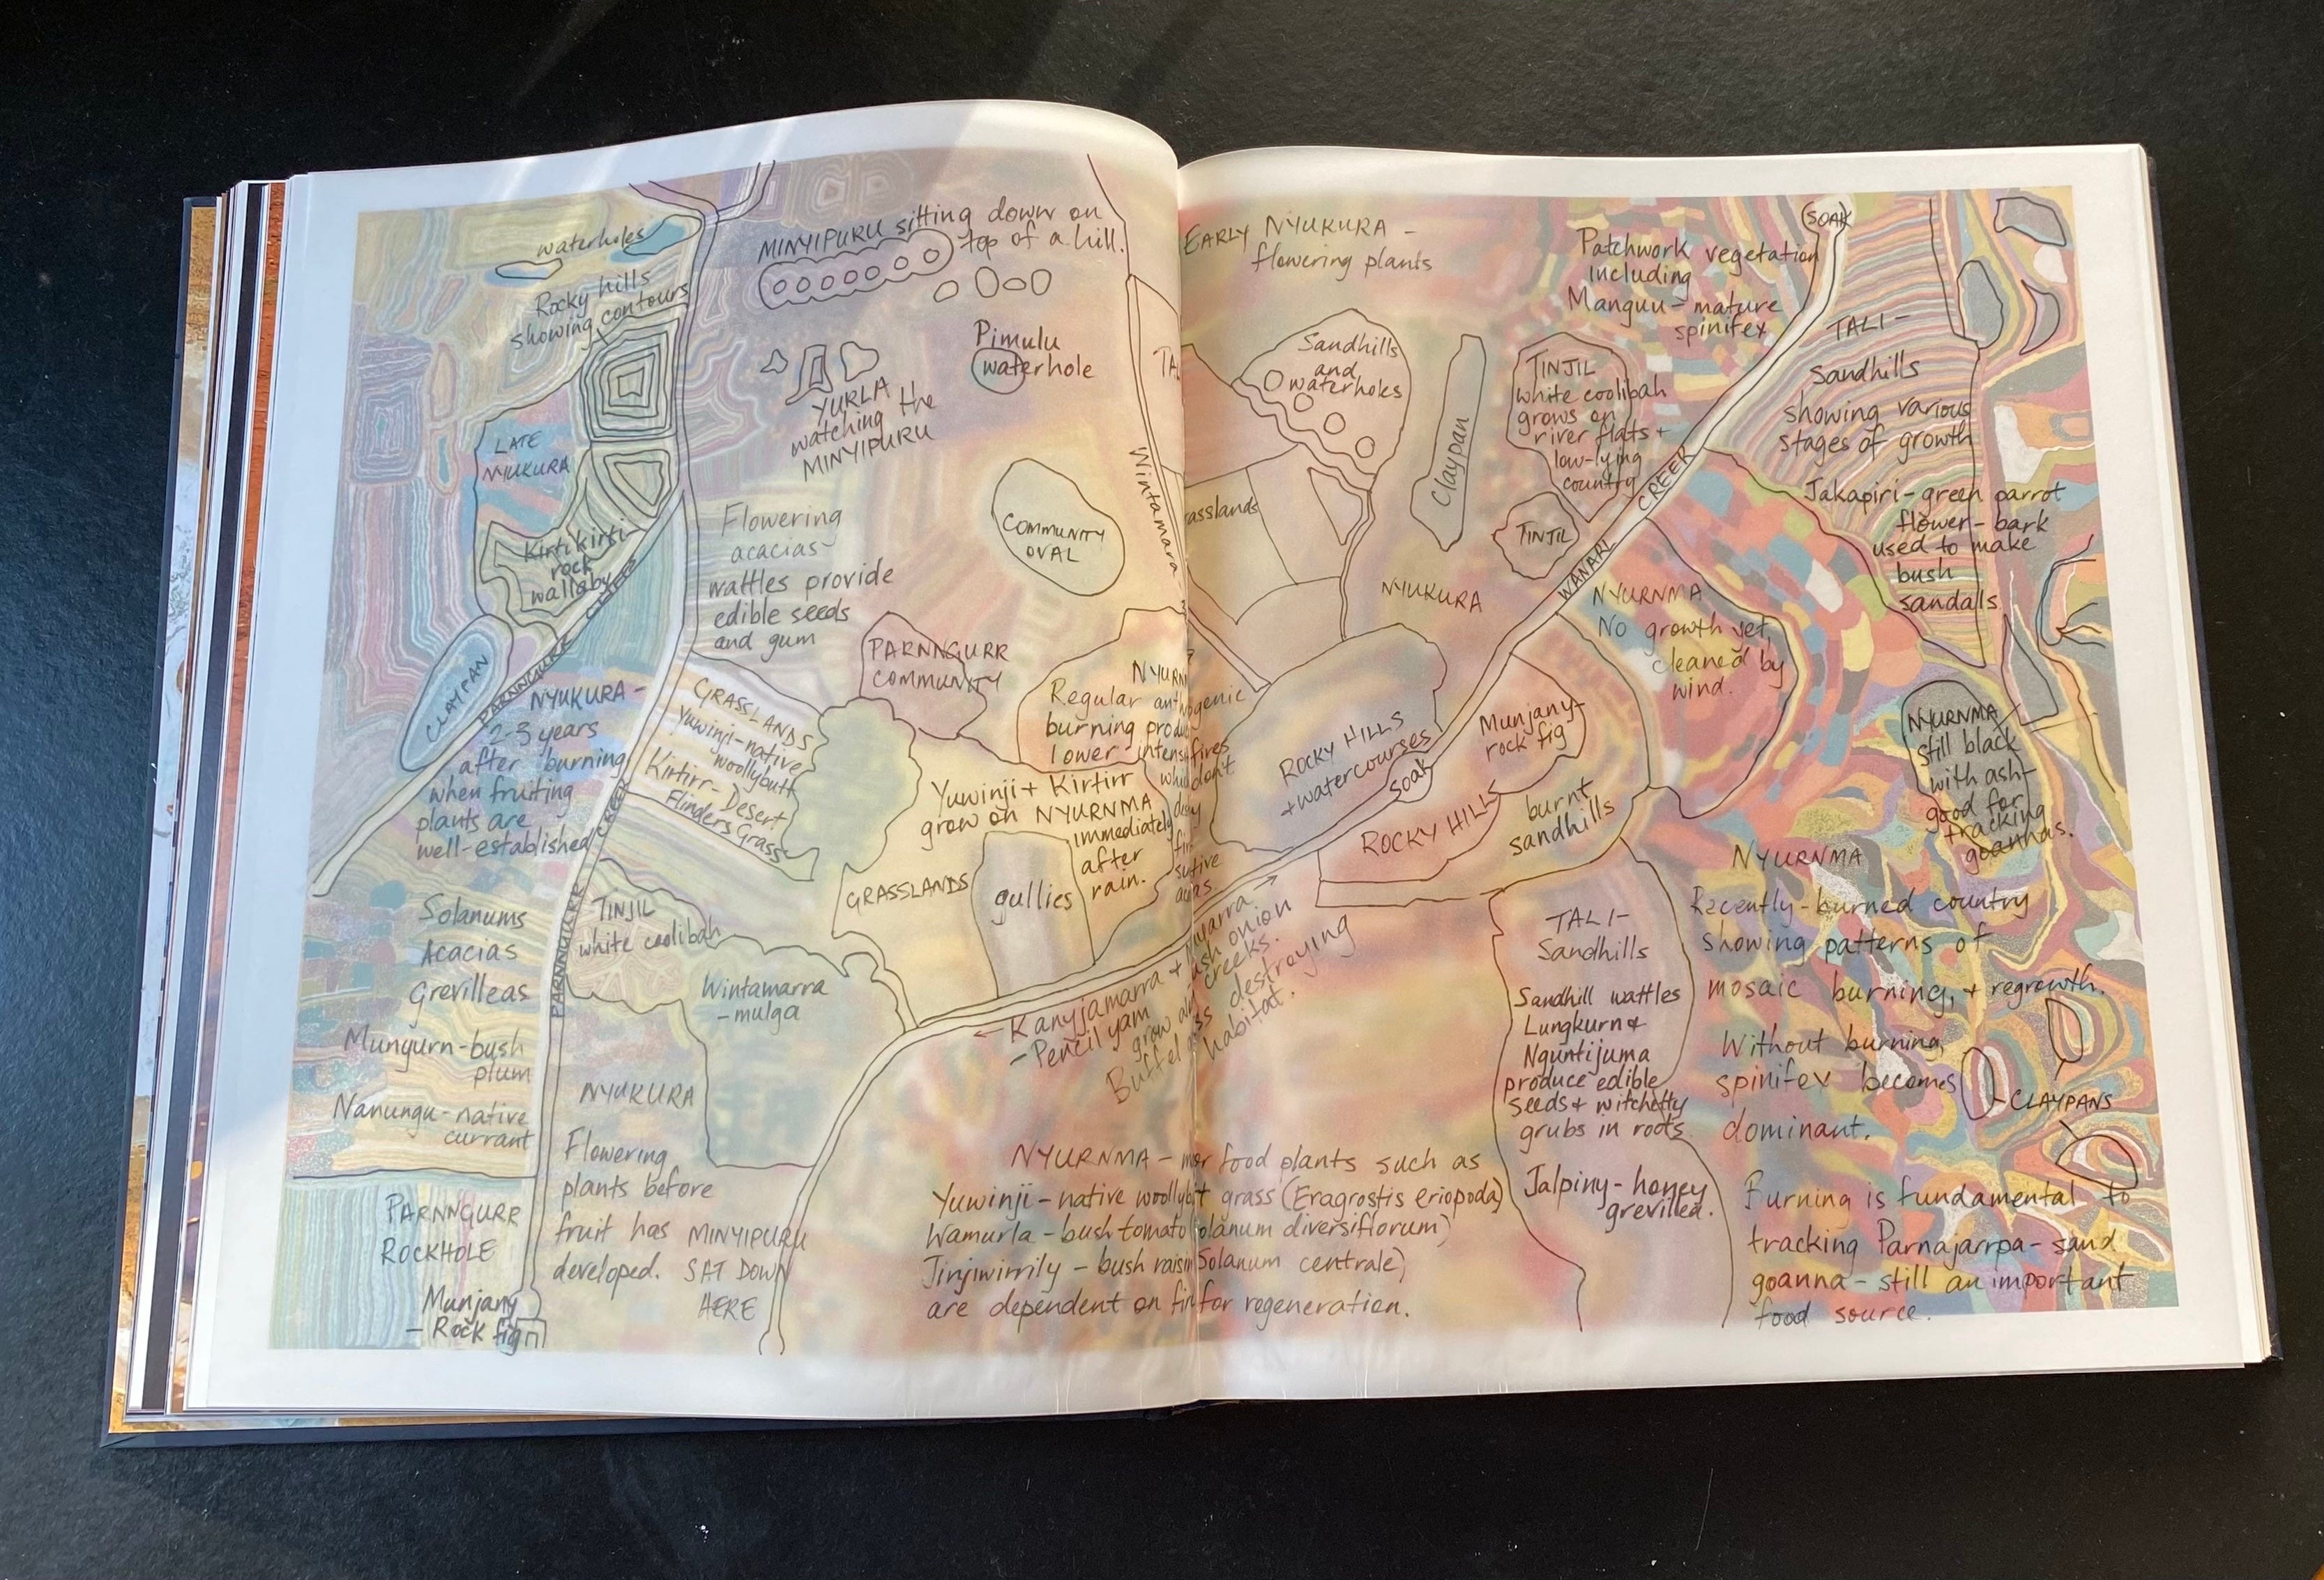 waterholes
Rocky hills
showing contours
MINYIPURU sitting down on
top of a hill.
YURLA
watching the
MINYIPURU
Pimulu
waterhole
LATE
NYUKURA
Kirti kirti
rock
wallaby
CLAYPAN
PARNNGURR CREEK
Flowering
acacias-
wattles provide
edible seeds
and gum
COMMUNITY
OVAL
Wintamarra
PARNNGURR
COMMUNITY
NYUKURA -
2-3 years
after burning
when fruiting
plants are
well-established
GRASSLANDS
Yuwinji-native
woollybutt
Kirtirr- Desert
Flinders Grass
Regular anthropogenic
burning
lower-
Yuwinji + Kirtirr
grow on NYURNMA
immediately
after
rain.
GRASSLANDS
gullies
PARNNGURR CREEK
TINJIL
white coolibah
Wintamarra
-mulga
Solanums
Acacias
Grevilleas
Munyurn-bush
plum
Nanungu-native
currant
NYUKURA
Flowering
plants before
fruit has
developed.
MINYIPURU
SAT DOWN
HERE
PARNNGURR
ROCKHOLE
Munjany
- Rock fig
← Kanyjamarra +
-Pencil yam
onion
grow
creeks.
destroying
habitat.
NYURNMA - food plants such as
Yuwinji-native grass (Eragrostis eriopoda)
Wamurla-bush tomato diversiflorum)
Jinjiwirrily - bush raisin Solanum centrale)
are dependent on for regeneration.
EARLY NYUKURA -
flowering plants
Sandhills
and
waterholes
Claypan
TINJIL
white coolibah
grows on
river flats +
low-lying
country
TINJIL
Patchwork vegetation
including
Manguu-mature
spinifex
SOAK
TALI-
Sandhills
showing various
stages of growth
Jakapiri-green parrot
flower-bark
used to make
bush
sandals.
WANARL CREEK
NYUKURA
NYURNMA
No growth yet,
cleaned by
wind.
ROCKY HILLS
+ watercourses
Soak
Munjany-
rock fig
ROCKY HILLS
burnt
sandhills
NYURNMA
still black
with ash-
good for
tracking
goannas.
NYURNMA
Recently-burned country
showing patterns of
mosaic burning, + regrowth.
Without burning,
spinifex becomes
dominant.
CLAYPANS
TALI-
Sandhills
Sandhill wattles
Lungkurn +
Nguntijuma
produce edible
seeds + witchetty
grubs in roots.
Jalpiny-honey
grevillea.
Burning is fundamental to
tracking Parnajarrpa-sand
goanna-still an important
food source.